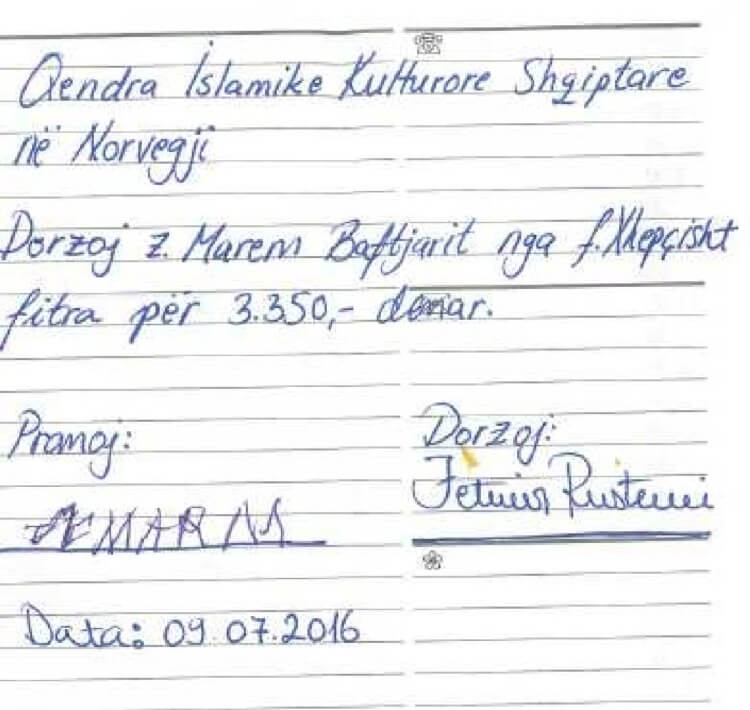 Qendra İslamike Kulturore Shqiptare
në Norvegji
Dorzoj z. Marem Baftjarit nga f. Xhepçisht
fitra për 3.350,- denar.
Pranoj:
Dorzoj:
Rustemi
Data: 09.07.2016